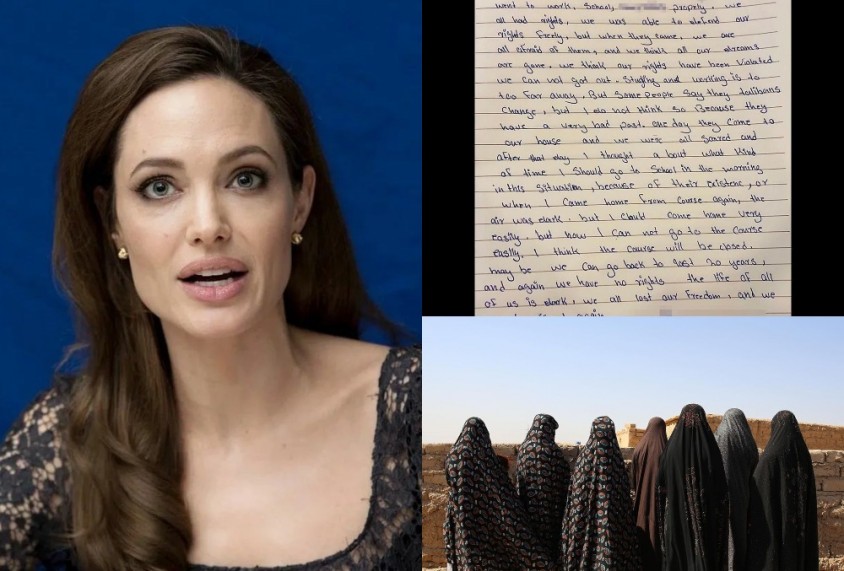 want to work, School, properly, we
all had rights, we was able to defend our
rights freely, but when they came, we are
all afraid of them, and we think all our dreams
are gone. we think our rights have been violated
we can not got out. Studing and working is to
too far away. But some people say they talibans
change, but I do not think so Because they
have a very bad past. one day they come to
our house and we were all scared and
after that day I thought a bout what kind
of time I Should go to School in the morning
in this situation, because of their existenc, or
when I came home from course again, the
air was dark. but I could come home very
easily but now I can not go to the course
easily. I think the course will be closed.
may be we can go back to last 20 years,
and again we have no rights the life of all
of us is dark, we all lost our freedom, and we
again